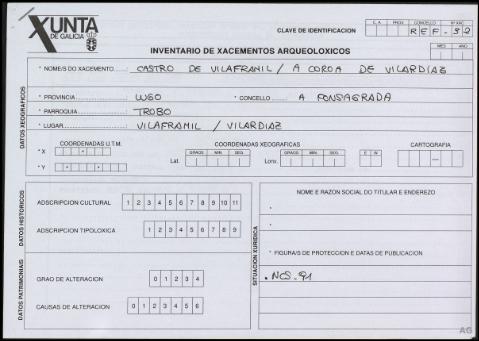 XUNTA
DE GALICIA
CLAVE DE IDENTIFICACION
C.A. PROV. CONCELLO Nº XAC.
REF-32
INVENTARIO DE XACEMENTOS ARQUEOLOXICOS
MES ANO
DATOS XEOGRAFICOS
* NOME/S DO XACEMENTO CASTRO DE VILAFRANIL / A COROA DE VILARDIAZ
* PROVINCIA LUGO * CONCELLO A FONSAGRADA
* PARROQUIA TROBO
* LUGAR VILAFRAMIL / VILARDIAZ
COORDENADAS U.T.M. COORDENADAS XEOGRAFICAS CARTOGRAFIA
* X
* Y
Lat. GRAOS MIN. SEG.
Lonx. GRAOS MIN. SEG. E W
DATOS HISTORICOS
ADSCRIPCION CULTURAL 1 2 3 4 5 6 7 8 9 10 11
ADSCRIPCION TIPOLOXICA 1 2 3 4 5 6 7 8 9
DATOS PATRIMONIAIS
GRAO DE ALTERACION 0 1 2 3 4
CAUSAS DE ALTERACION 0 1 2 3 4 5 6
SITUACION XURIDICA
NOME E RAZON SOCIAL DO TITULAR E ENDEREZO
* FIGURA/S DE PROTECCION E DATAS DE PUBLICACION
. NCS-91
AG